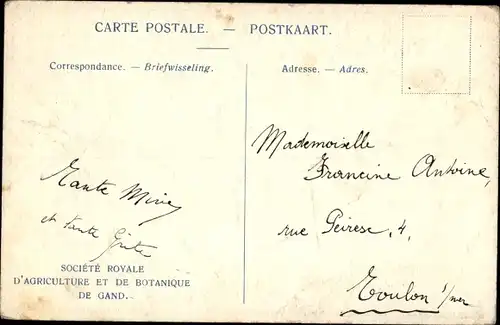 CARTE POSTALE. — POSTKAART.
Correspondance. — Briefwisseling.
Adresse. — Adres.
Mademoiselle
Francine Antoine,
rue Peiresc, 4,
Toulon s/mer
Tante Mimy
et tante Guite
SOCIÉTÉ ROYALE
D'AGRICULTURE ET DE BOTANIQUE
DE GAND.